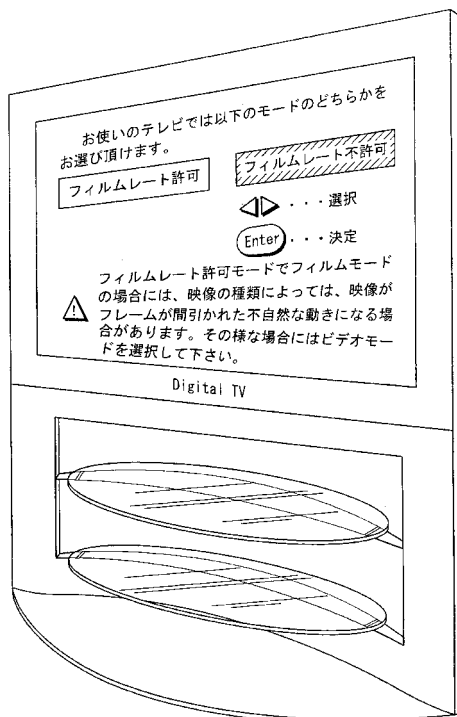 お使いのテレビでは以下のモードのどちらかを
お選び頂けます。
フィルムレート許可 フィルムレート不許可
・・・選択
Enter ・・・決定
フィルムレート許可モードでフィルムモード
の場合には、映像の種類によっては、映像が
フレームが間引かれた不自然な動きになる場
合があります。その様な場合にはビデオモー
ドを選択して下さい。
Digital TV